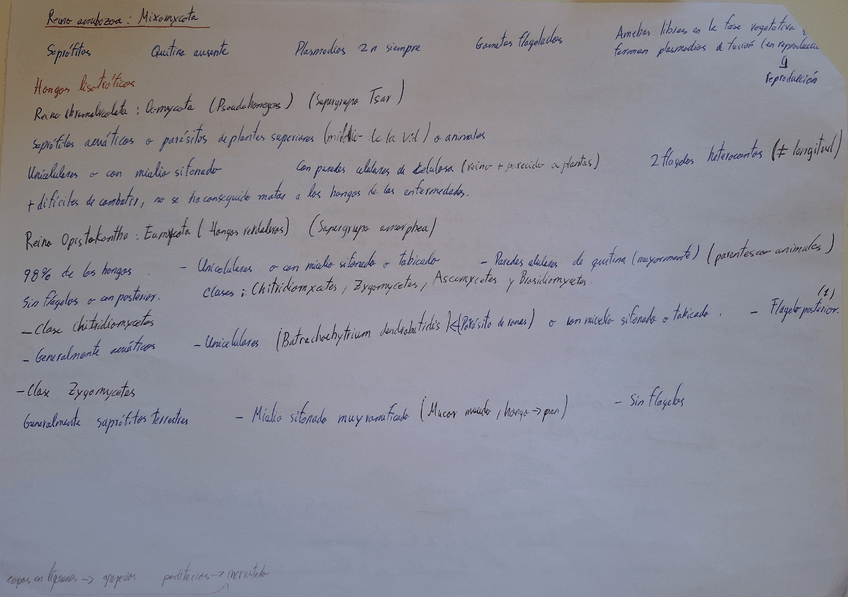 Reino amebozoa: Mixomycota
Saprófitos Quitina ausente Plasmodios 2n siempre Gametos flagelados Amebas libres en la fase vegetativa y
forman plasmodios de fusión (en reproducción
reproducción
Hongos lisotróficos
Reino chromalveolata: Oomycota (Pseudohongos) (Supergrupo Tsar)
Saprófitos acuáticos o parásitos de plantas superiores (mildio de la vid) o animales
Unicelulares o con micelio sifonado Con paredes celulares de celulosa (reino + parecido a plantas) 2 flagelos heterocontos (≠ longitud)
+ difíciles de combatir, no se ha conseguido matar a los hongos de las enfermedades.
Reino Opistokontha: Eumycota (Hongos verdaderos) (Supergrupo amorphea)
98% de los hongos - Unicelulares o con micelio sifonado o tabicado - Paredes celulares de quitina (mayormente) (parentesco animales)
Sin flagelos o con posterior. Clases: Chitridiomycetes, Zygomycetes, Ascomycetes y Basidiomycetes
- Clase Chitridiomycetes
- Generalmente acuáticos - Unicelulares (Batrachochytrium dendrobatidis) (Parásito de ranas) o con micelio sifonado o tabicado. - Flagelo posterior. (1)
- Clase Zygomycetes
Generalmente saprófitos terrestres - Micelio sifonado muy ramificado (Mucor mucedo, hongo → pan) - Sin flagelos
→ peritecios →